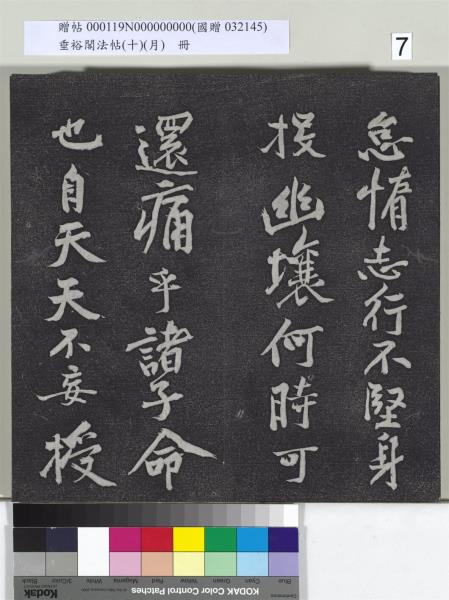 贈帖 000119N000000000(國贈 032145)
垂裕閣法帖(十)(月) 冊
7
怠惰志行不堅身
投幽壤何時可
還痛乎諸子命
也自天天不妄授
Blue Cyan Green Yellow Red Magenta White 3/Color Black
Kodak
KODAK Color Control Patches